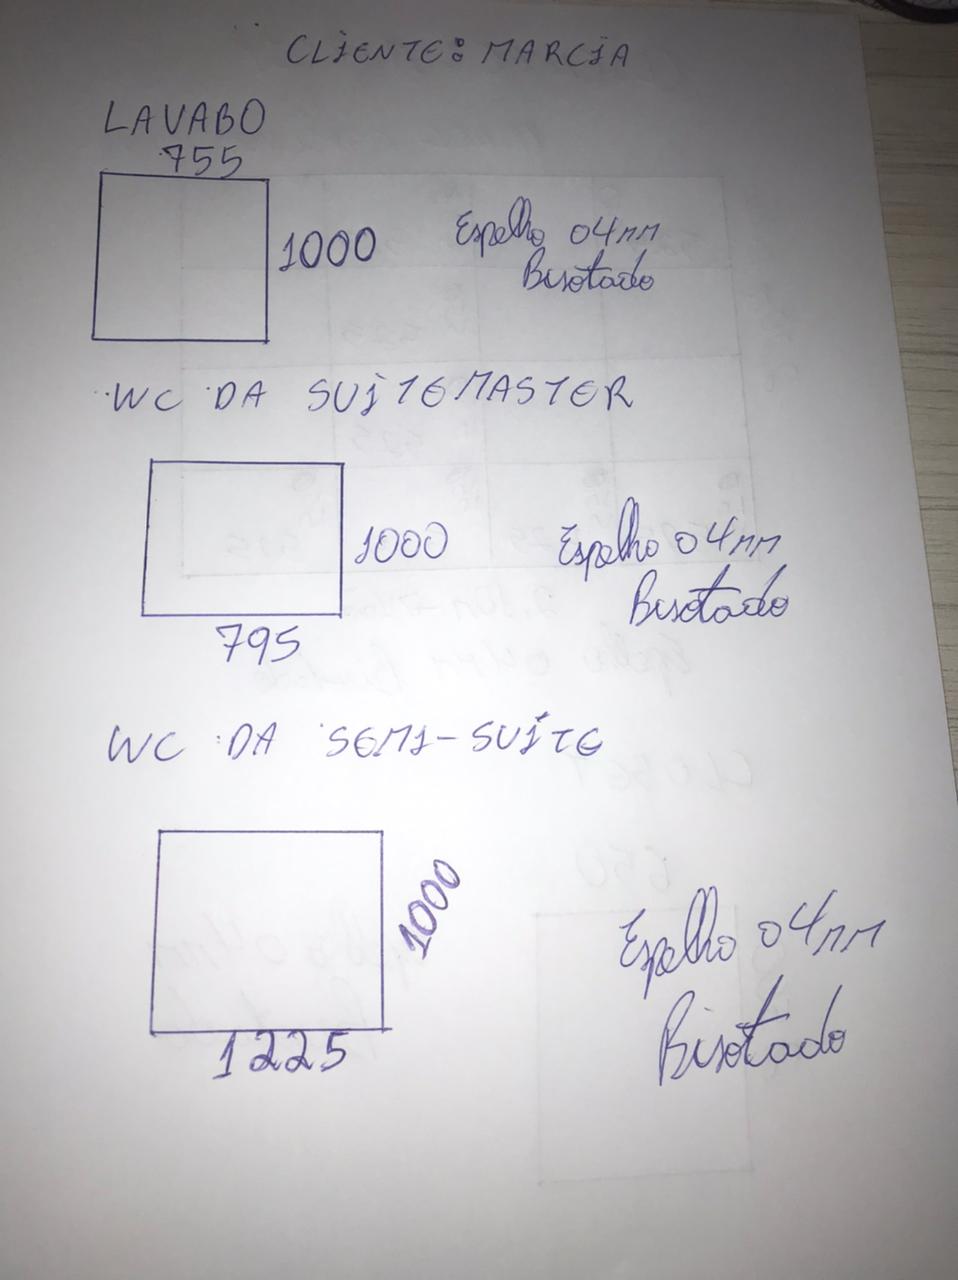 CLIENTE: MARCIA
LAVABO
755
1000
Espelho 04mm
Bisotado
WC DA SUITE MASTER
1000
Espelho 04mm
Bisotado
795
WC DA SEMI-SUÍTE
1000
Espelho 04mm
Bisotado
1225